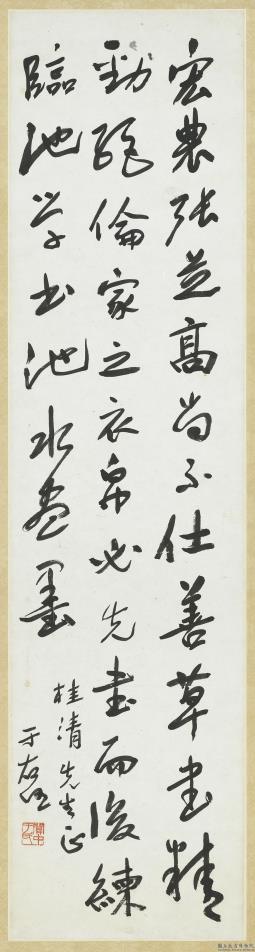 宏農張芝高尚不仕善草書精
勁絕倫家之衣帛必先書而後練
臨池學書池水盡墨
桂清先生正
于右任